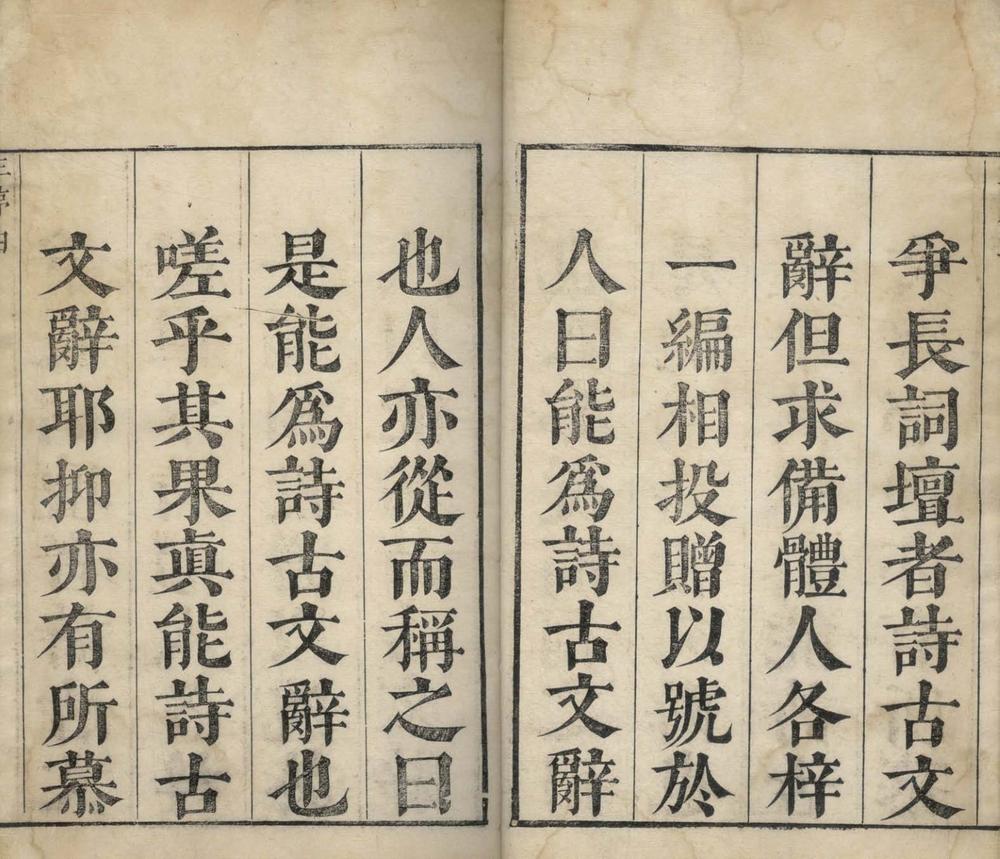 爭長詞壇者詩古文
辭但求備體人各梓
一編相投贈以號於
人曰能爲詩古文辭
也人亦從而稱之曰
是能爲詩古文辭也
嗟乎其果眞能詩古
文辭耶抑亦有所慕